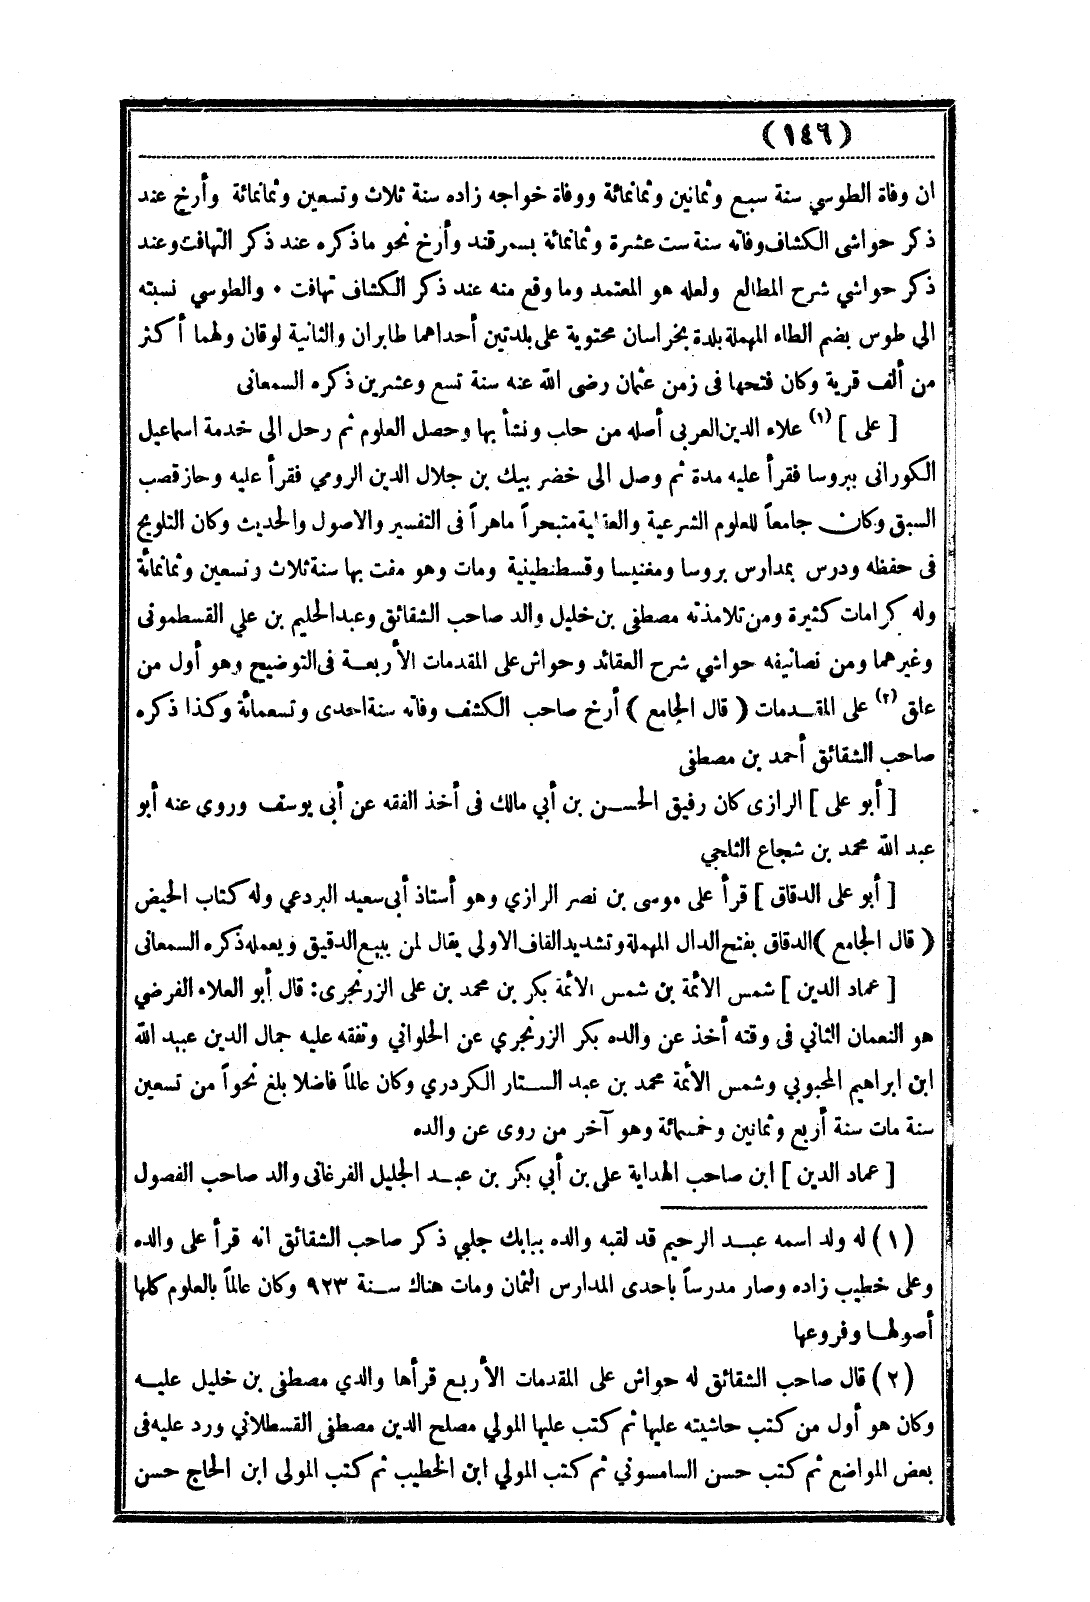 (١٤٦)
ان وفاة الطوسي سنة سبع وثمانين وثمانمائة ووفاة خواجه زاده سنة ثلاث وتسعين وثمانمائة وأرخ عند
ذكر حواشى الكشاف وفاته سنة ست عشرة وثمانمائة بسمرقند وأرخ نحو ماذكره عند ذكر التهافت وعند
ذكر حواشي شرح المطالع ولعله هو المعتمد وما وقع منه عند ذكر الكشاف تهافت ٠ والطوسي نسبته
الى طوس بضم الطاء المهملة بلدة بخراسان محتوية على بلدتين أحداهما طابران والثانية لوقان ولهما أكثر
من ألف قرية وكان فتحها فى زمن عثمان رضى الله عنه سنة تسع وعشرين ذكره السمعانى
[ على ] (١) علاء الدين العربى أصله من حلب ونشأ بها وحصل العلوم ثم رحل الى خدمة اسماعيل
الكورانى ببروسا فقرأ عليه مدة ثم وصل الى خضر بيك بن جلال الدين الرومي فقرأ عليه وحاز قصب
السبق وكان جامعاً للعلوم الشرعية والعقلية متبحراً ماهراً فى التفسير والاصول والحديث وكان التلويح
فى حفظه ودرس بمدارس بروسا ومغنيسا وقسطنطينية ومات وهو مفت بها سنة ثلاث وتسعين وثمانمائة
وله كرامات كثيرة ومن تلامذته مصطفى بن خليل والد صاحب الشقائق وعبد الحليم بن علي القسطمونى
وغيرهما ومن تصانيفه حواشي شرح العقائد وحواش على المقدمات الأربعة فى التوضيح وهو أول من
علق (٢) على المقدمات ( قال الجامع ) أرخ صاحب الكشف وفاته سنة احدى وتسعمائة وكذا ذكره
صاحب الشقائق أحمد بن مصطفى
[ أبو على ] الرازى كان رفيق الحسن بن أبي مالك فى أخذ الفقه عن أبى يوسف وروي عنه أبو
عبد الله محمد بن شجاع الثلجي
[ أبو على الدقاق ] قرأ على موسى بن نصر الرازي وهو أستاذ أبى سعيد البردعي وله كتاب الحيض
( قال الجامع ) الدقاق بفتح الدال المهملة وتشديد القاف الاولى يقال لمن يبيع الدقيق ويعمله ذكره السمعانى
[ عماد الدين ] شمس الائمة بن شمس الائمة بكر بن محمد بن على الزرنجرى: قال أبو العلاء الفرضي
هو النعمان الثاني فى وقته أخذ عن والده بكر الزرنجري عن الحلواني وتفقه عليه جمال الدين عبيد الله
ابن ابراهيم المحبوبي وشمس الائمة محمد بن عبد الستار الكردري وكان عالماً فاضلا بلغ نحواً من تسعين
سنة مات سنة أربع وثمانين وخمسمائة وهو آخر من روى عن والده
[ عماد الدين ] ابن صاحب الهداية على بن أبي بكر بن عبد الجليل الفرغانى والد صاحب الفصول
(١) له ولد اسمه عبد الرحيم قد لقبه والده ببابك جلبي ذكر صاحب الشقائق انه قرأ على والده
وعلى خطيب زاده وصار مدرساً باحدى المدارس الثمان ومات هناك سنة ٩٢٣ وكان عالماً بالعلوم كلها
أصولها وفروعها
(٢) قال صاحب الشقائق له حواش على المقدمات الأربع قرأها والدي مصطفى بن خليل عليه
وكان هو أول من كتب حاشيته عليها ثم كتب عليها المولي مصلح الدين مصطفى القسطلاني ورد عليه فى
بعض المواضع ثم كتب حسن السامسوني ثم كتب المولي ابن الخطيب ثم كتب المولى ابن الحاج حسن